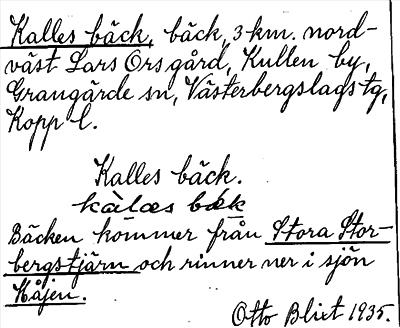 Kalles bäck, bäck, 3 km. nord-
väst Lars Ors gård, Kullen by,
Grangärde sn, Västerbergslags tg,
Kopp l.
Kalles bäck.
kàlæs bæk
Bäcken kommer från Stora Stor-
bergstjärn och rinner ner i sjön
Håjen.
Otto Blixt 1935.